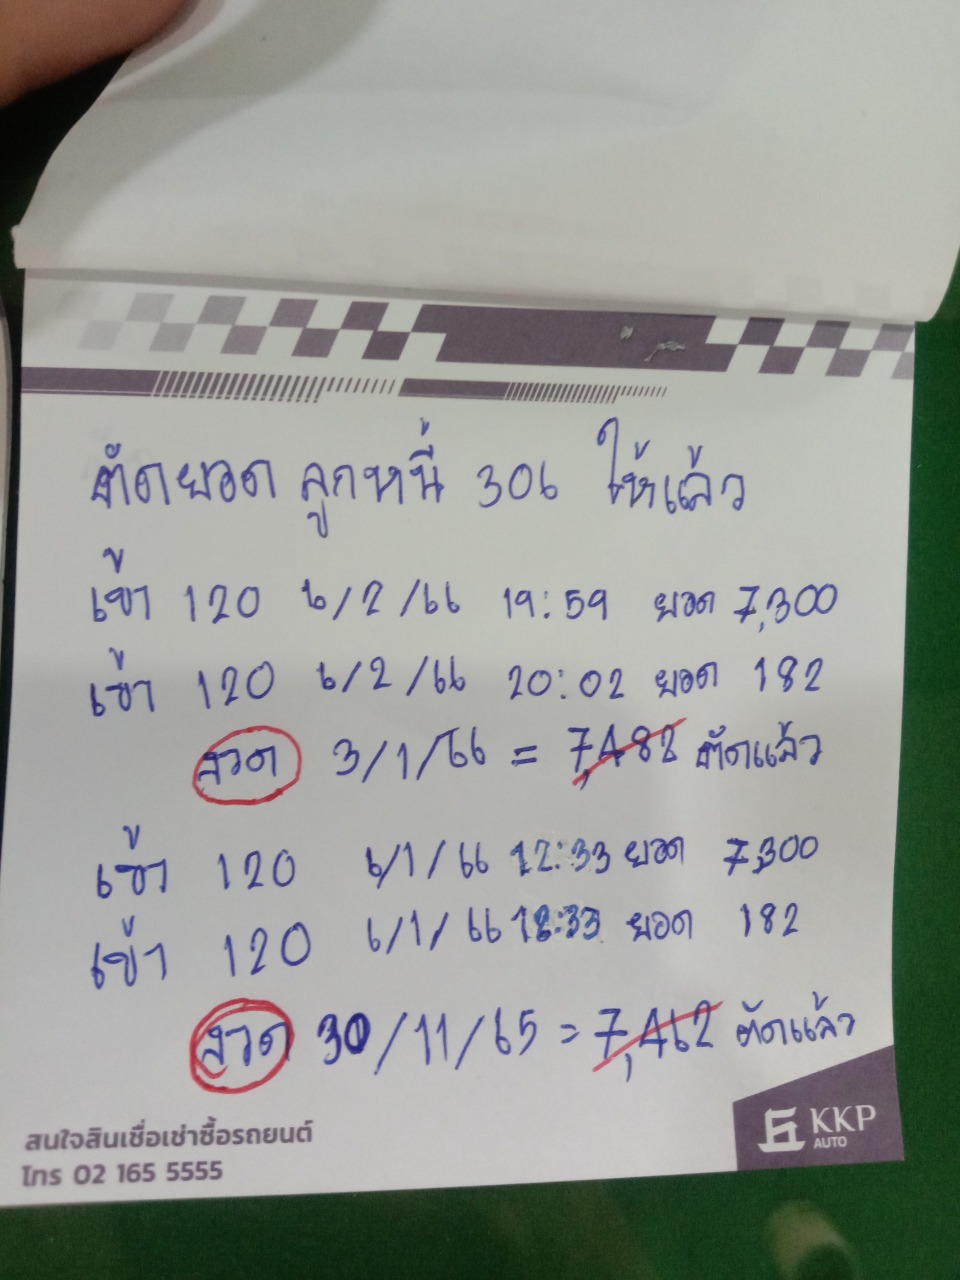 ตัดยอด ลูกหนี้ 306 ให้แล้ว
เข้า 120 6/2/66 19:59 ยอด 7,300
เข้า 120 6/2/66 20:02 ยอด 182
งวด 3/1/66 = 7,482 ตัดแล้ว
เข้า 120 6/1/66 12:33 ยอด 7,300
เข้า 120 6/1/66 12:33 ยอด 182
งวด 30/11/65 = 7,462 ตัดแล้ว
สนใจสินเชื่อเช่าซื้อรถยนต์
โทร 02 165 5555
KKP
AUTO